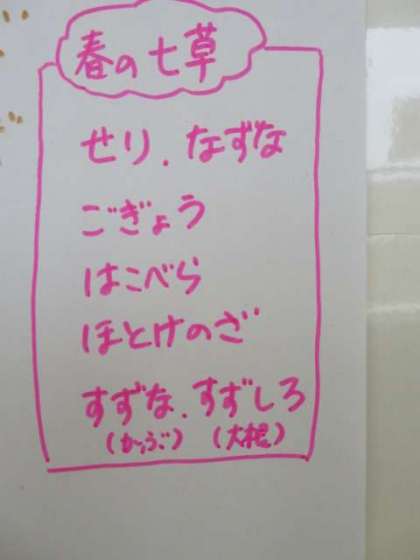 春の七草
せり．なずな
ごぎょう
はこべら
ほとけのざ
すずな．すずしろ
(かぶ) (大根)